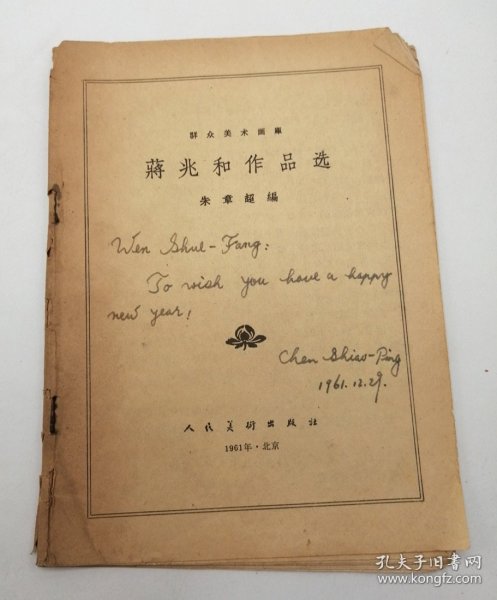 群众美术画庫
蔣兆和作品选
朱章超編
Wen Shue-Fang:
To wish you have a happy
new year!
Chen Shiao-Ping
1961.12.29.
人民美術出版社
1961年·北京
孔夫子旧书网
www.kongfz.com